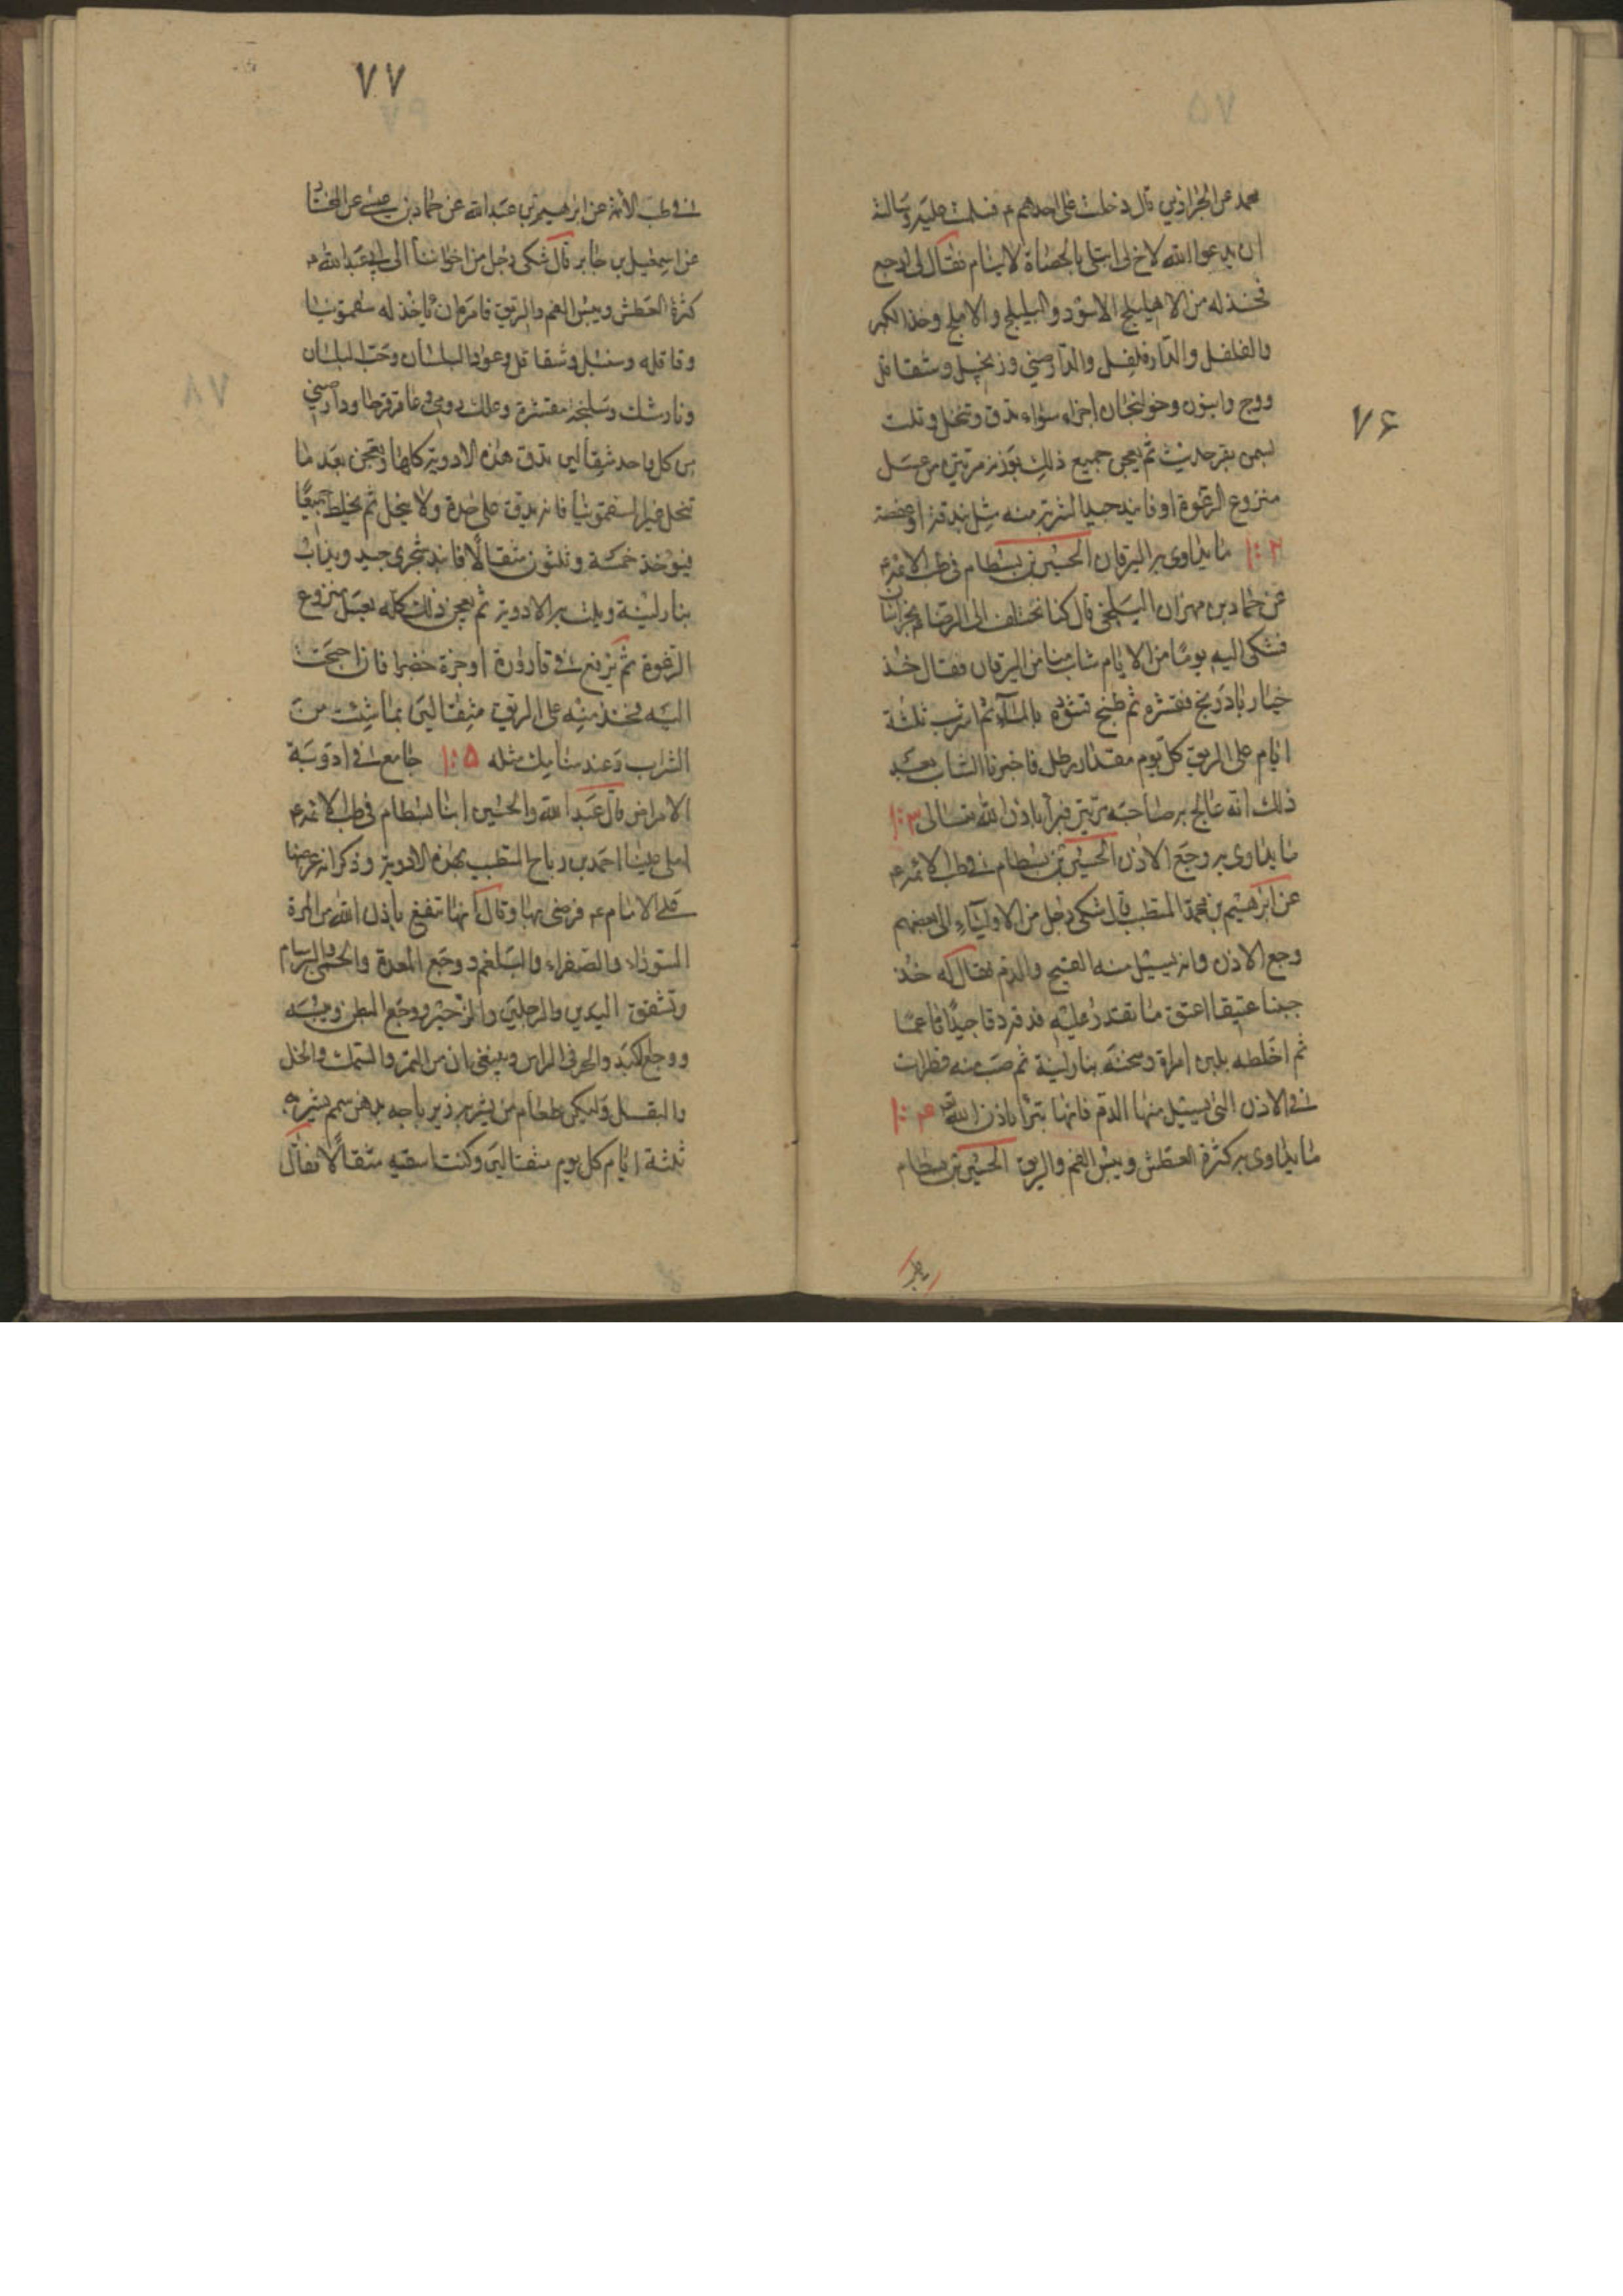 ۷۶
محمد عن الخراذيني قال دخلت على احدهم ع فسلمت عليه وسالته
ان يدعو الله لاخ لي ابتلى بالحصاة لا ينام فقال لي ارجع
فخذ له من الاهليلج الاسود والبليلج والاملج وخذ الكور
والفلفل والدار فلفل والدارصيني وزنجبيل وشقاقل
ووج وانيسون وخولنجان اجزاء سواء تدق وتنخل وتلت
بسمن بقر حديث ثم يعجن جميع ذلك بوزنه مرتين من عسل
منزوع الرغوة او فانيد جيد الشربة منه مثل بندقة او عفصة
ما يداوى به اليرقان الحسين بن بسطام في طب الائمة ع
عن حماد بن مهران البلخي قال كنا نختلف الى الرضا ع بخراسان
فشكى اليه يوما من الايام شاب منا من اليرقان فقال خذ
خيار باذرنج فقشره ثم اطبخ قشوره بالماء ثم اشرب ثلثة
ايام على الريق كل يوم مقدار رطل فاخبرنا الشاب بعد
ذلك انه عالج به صاحبه مرتين فبرأ باذن الله تعالى ۱۰۳
ما يداوى به وجع الاذن الحسين بن بسطام في طب الائمة ع
عن ابرهيم بن محمد المتطبب قال شكى رجل من الاولياء الى بعضهم
وجع الاذن وانه يسيل منه القيح والدم فقال له خذ
جبنا عتيقا اعتق ما تقدر عليه فدقه دقا جيدا ناعما
ثم اخلطه بلبن امراة وسخنه بنار لينة ثم صب منه قطرات
في الاذن التي يسيل منها الدم فانها تبرأ باذن الله ۱۰۴
ما يداوى به كثرة العطش ويبس الفم والريق الحسين بن بسطام
۷۷
في طب الائمة عن ابرهيم بن عبد الله عن حماد بن عيسى عن المختار
عن اسمعيل بن جابر قال شكى رجل من اخواننا الى ابي عبد الله ع
كثرة العطش ويبس الفم والريق فامره ان ياخذ له سقمونيا
وقاقله وسنبل وشقاقل وعود البلسان وحب البلسان
ونارمشك وسليخة مقشرة وعلك رومي وعاقرقرحا ودارصيني
من كل واحد مثقالين تدق هذه الادوية كلها وتعجن بعد ما
تنخل غير السقمونيا فانه يدق على حدة ولا ينخل ثم يخلط جميعا
فيؤخذ خمسة وثلثون مثقالا فانيد شجري جيد ويذاب
بنار لينة ويلت به الادوية ثم يعجن ذلك كله بعسل منزوع
الرغوة ثم يرفع في قارورة او جرة خضرا فان احتجت
اليه فخذ منه على الريق مثقالين بما شئت من
الشراب وعند منامك مثله ۱۰۵ جامع في ادوية
الامراض قال عبد الله والحسين ابنا بسطام في طب الائمة ع
املى علينا احمد بن رباح المتطبب بهذه الادوية وذكر انه عرضها
على الامام ع فرضى بها وقال انها تنفع باذن الله من المرة
السوداء والصفراء والبلغم ووجع المعدة والحمى والبرسام
وتشقق اليدين والرجلين والزحير ووجع البطن ويبسه
ووجع الكبد والحر في الراس وينبغي بان من التمر والسمك والخل
والبقل وليكن طعام من يشربه زيرباجه بدهن سمسم يشربه
ثلثة ايام كل يوم مثقالين وكنت اسقيه مثقالا فقال